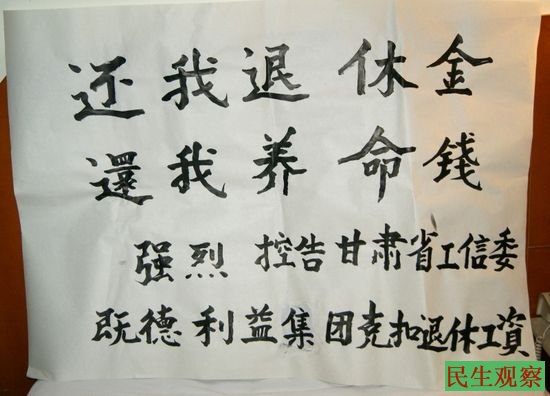 还我退休金
還我养命錢
强烈 控告甘肃省工信委
既德利益集团克扣退休工資
民生观察